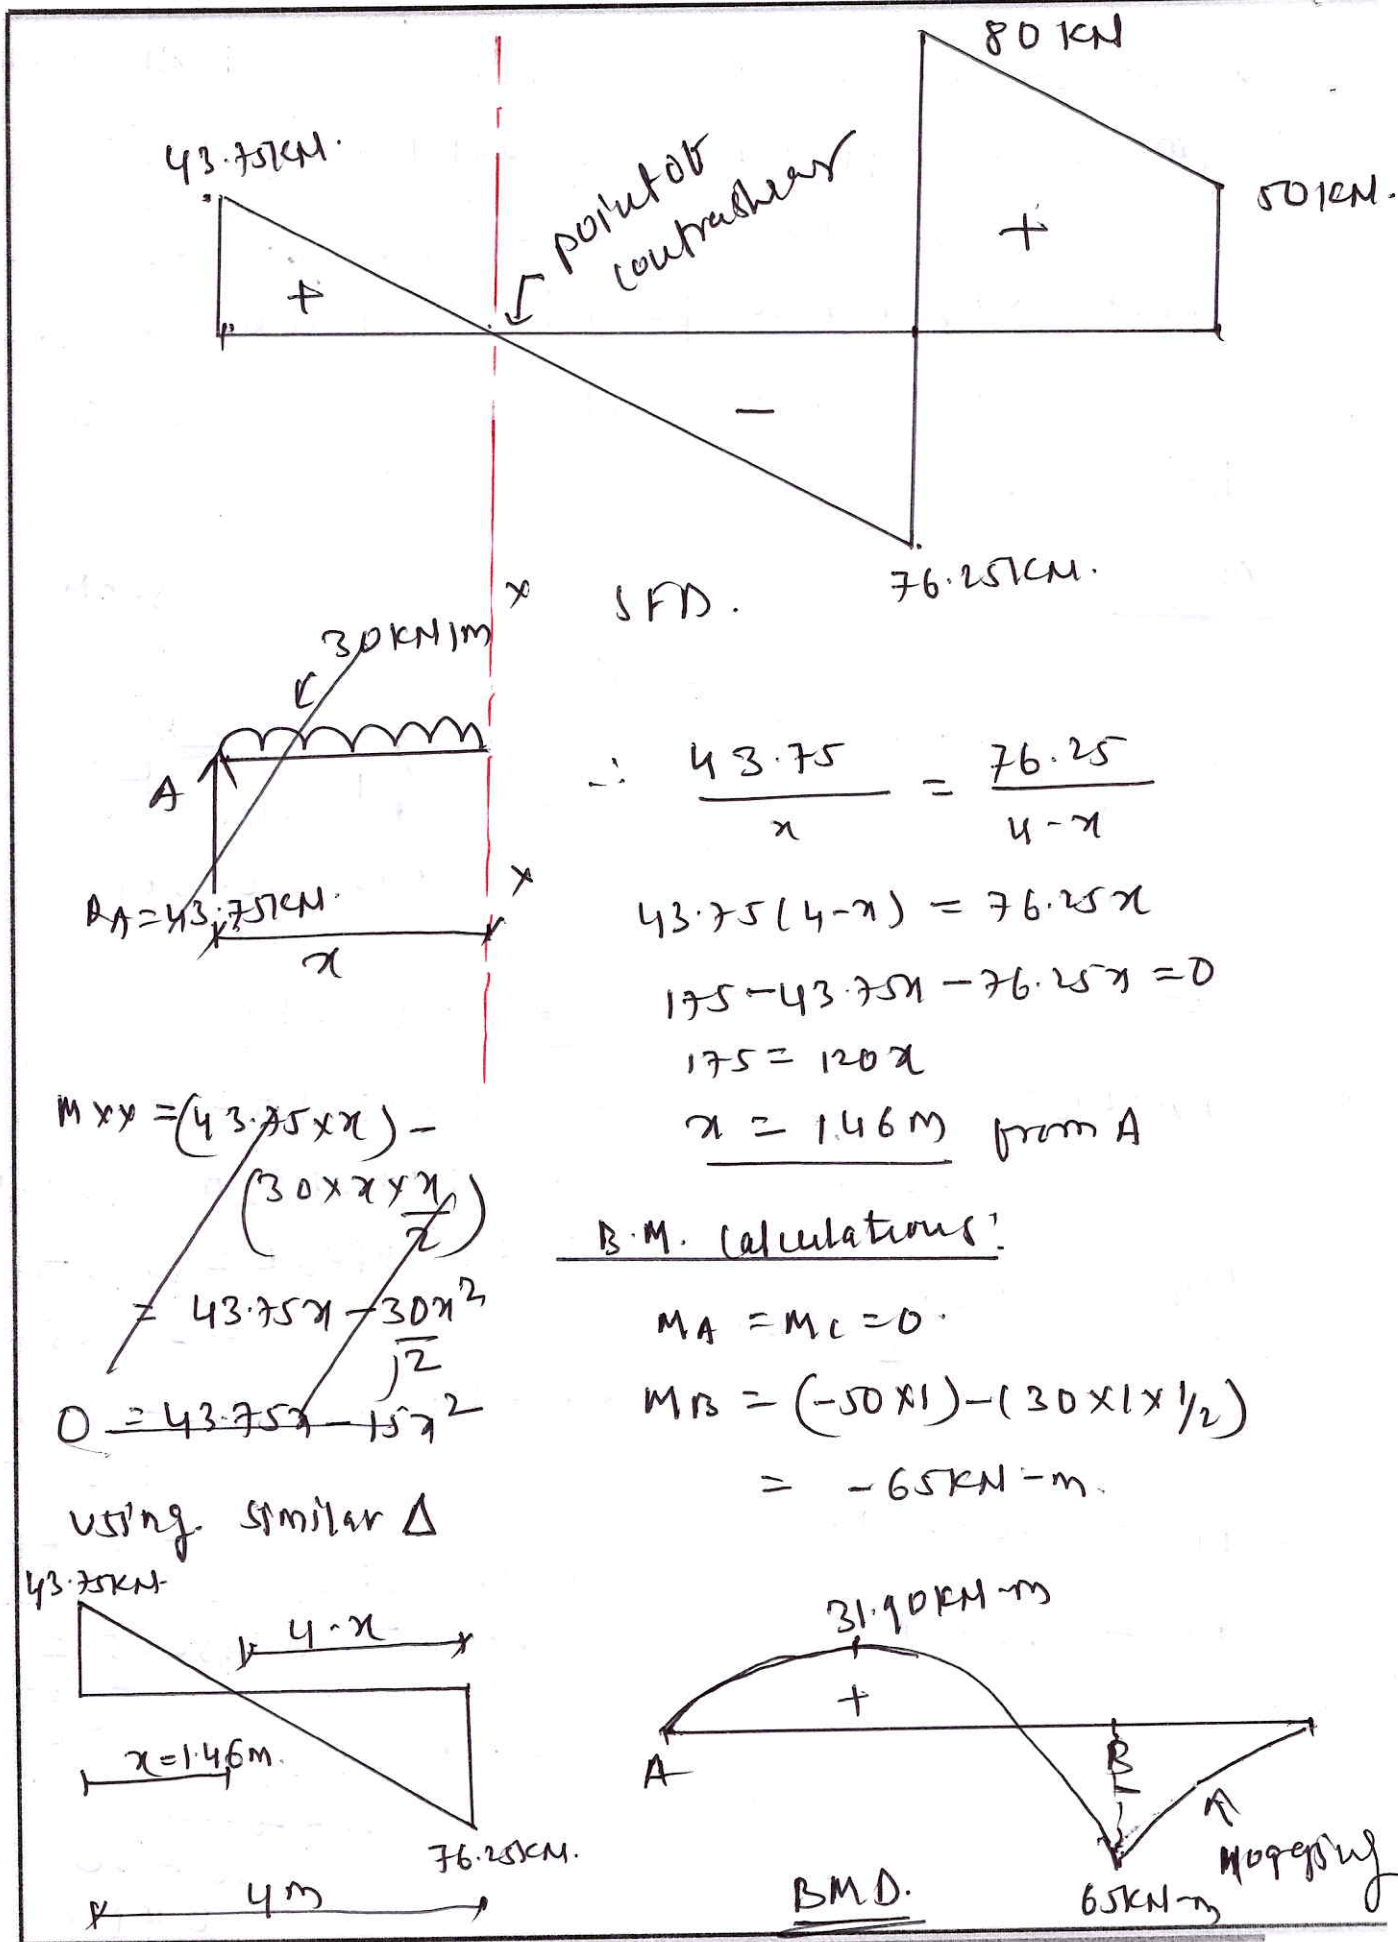 80 KN
43.75KN.
point of
contrashear
50KN.
+
+
−
76.25KN.
SFD.
x
30KN/m
A
RA=43.75KN.
x
x
∴ 43.75/x = 76.25/4-x
43.75(4-x) = 76.25x
175-43.75x-76.25x=0
175 = 120x
x = 1.46m from A
Mxx =(43.75×x)-
(30×x×x/2)
= 43.75x-30x²/2
0 = 43.75x-15x²
B.M. Calculations:
MA = MC = 0.
MB = (-50×1)-(30×1×1/2)
= -65KN-m.
using similar Δ
43.75KN
4-x
x=1.46m.
76.25KN.
4m
31.90KN-m
+
A
B
Hogging
65KN-m
BMD.